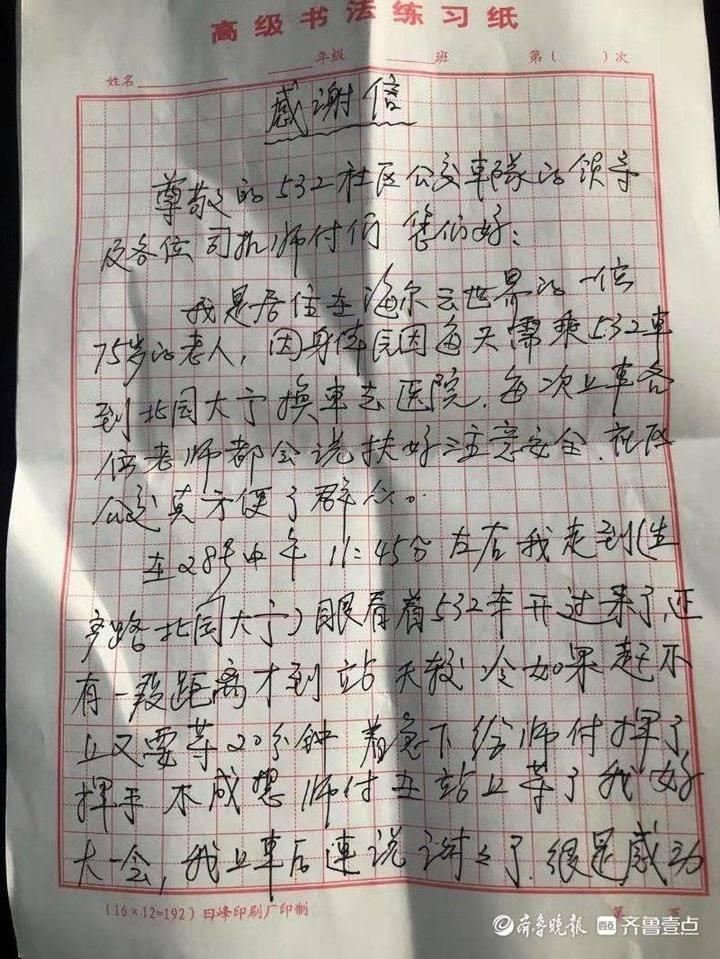 高级书法练习纸
姓名 年级 班 第( )次
感谢信
尊敬的532社区公交车队的领导
及各位司机师付们 您们好:
我是居住在海尔云世界的一位
75岁的老人,因身体原因每天需乘532车
到北园大宁换车去医院.每次上车各
位老师都会说扶好注意安全.社区
公交真方便了群众。
在28号中午11:45分左右我走到(生
产路北园大宁)眼看着532车开过来了,还
有一段距离才到站 天较冷如果赶不
上又要等20分钟 着急下给师付挥了
挥手 不成想师付在站上等了我好
大一会,我上车后连说谢谢了.很是感动
(16×12=192)日峰印刷厂印制 第 页
齐鲁晚报 齐鲁壹点